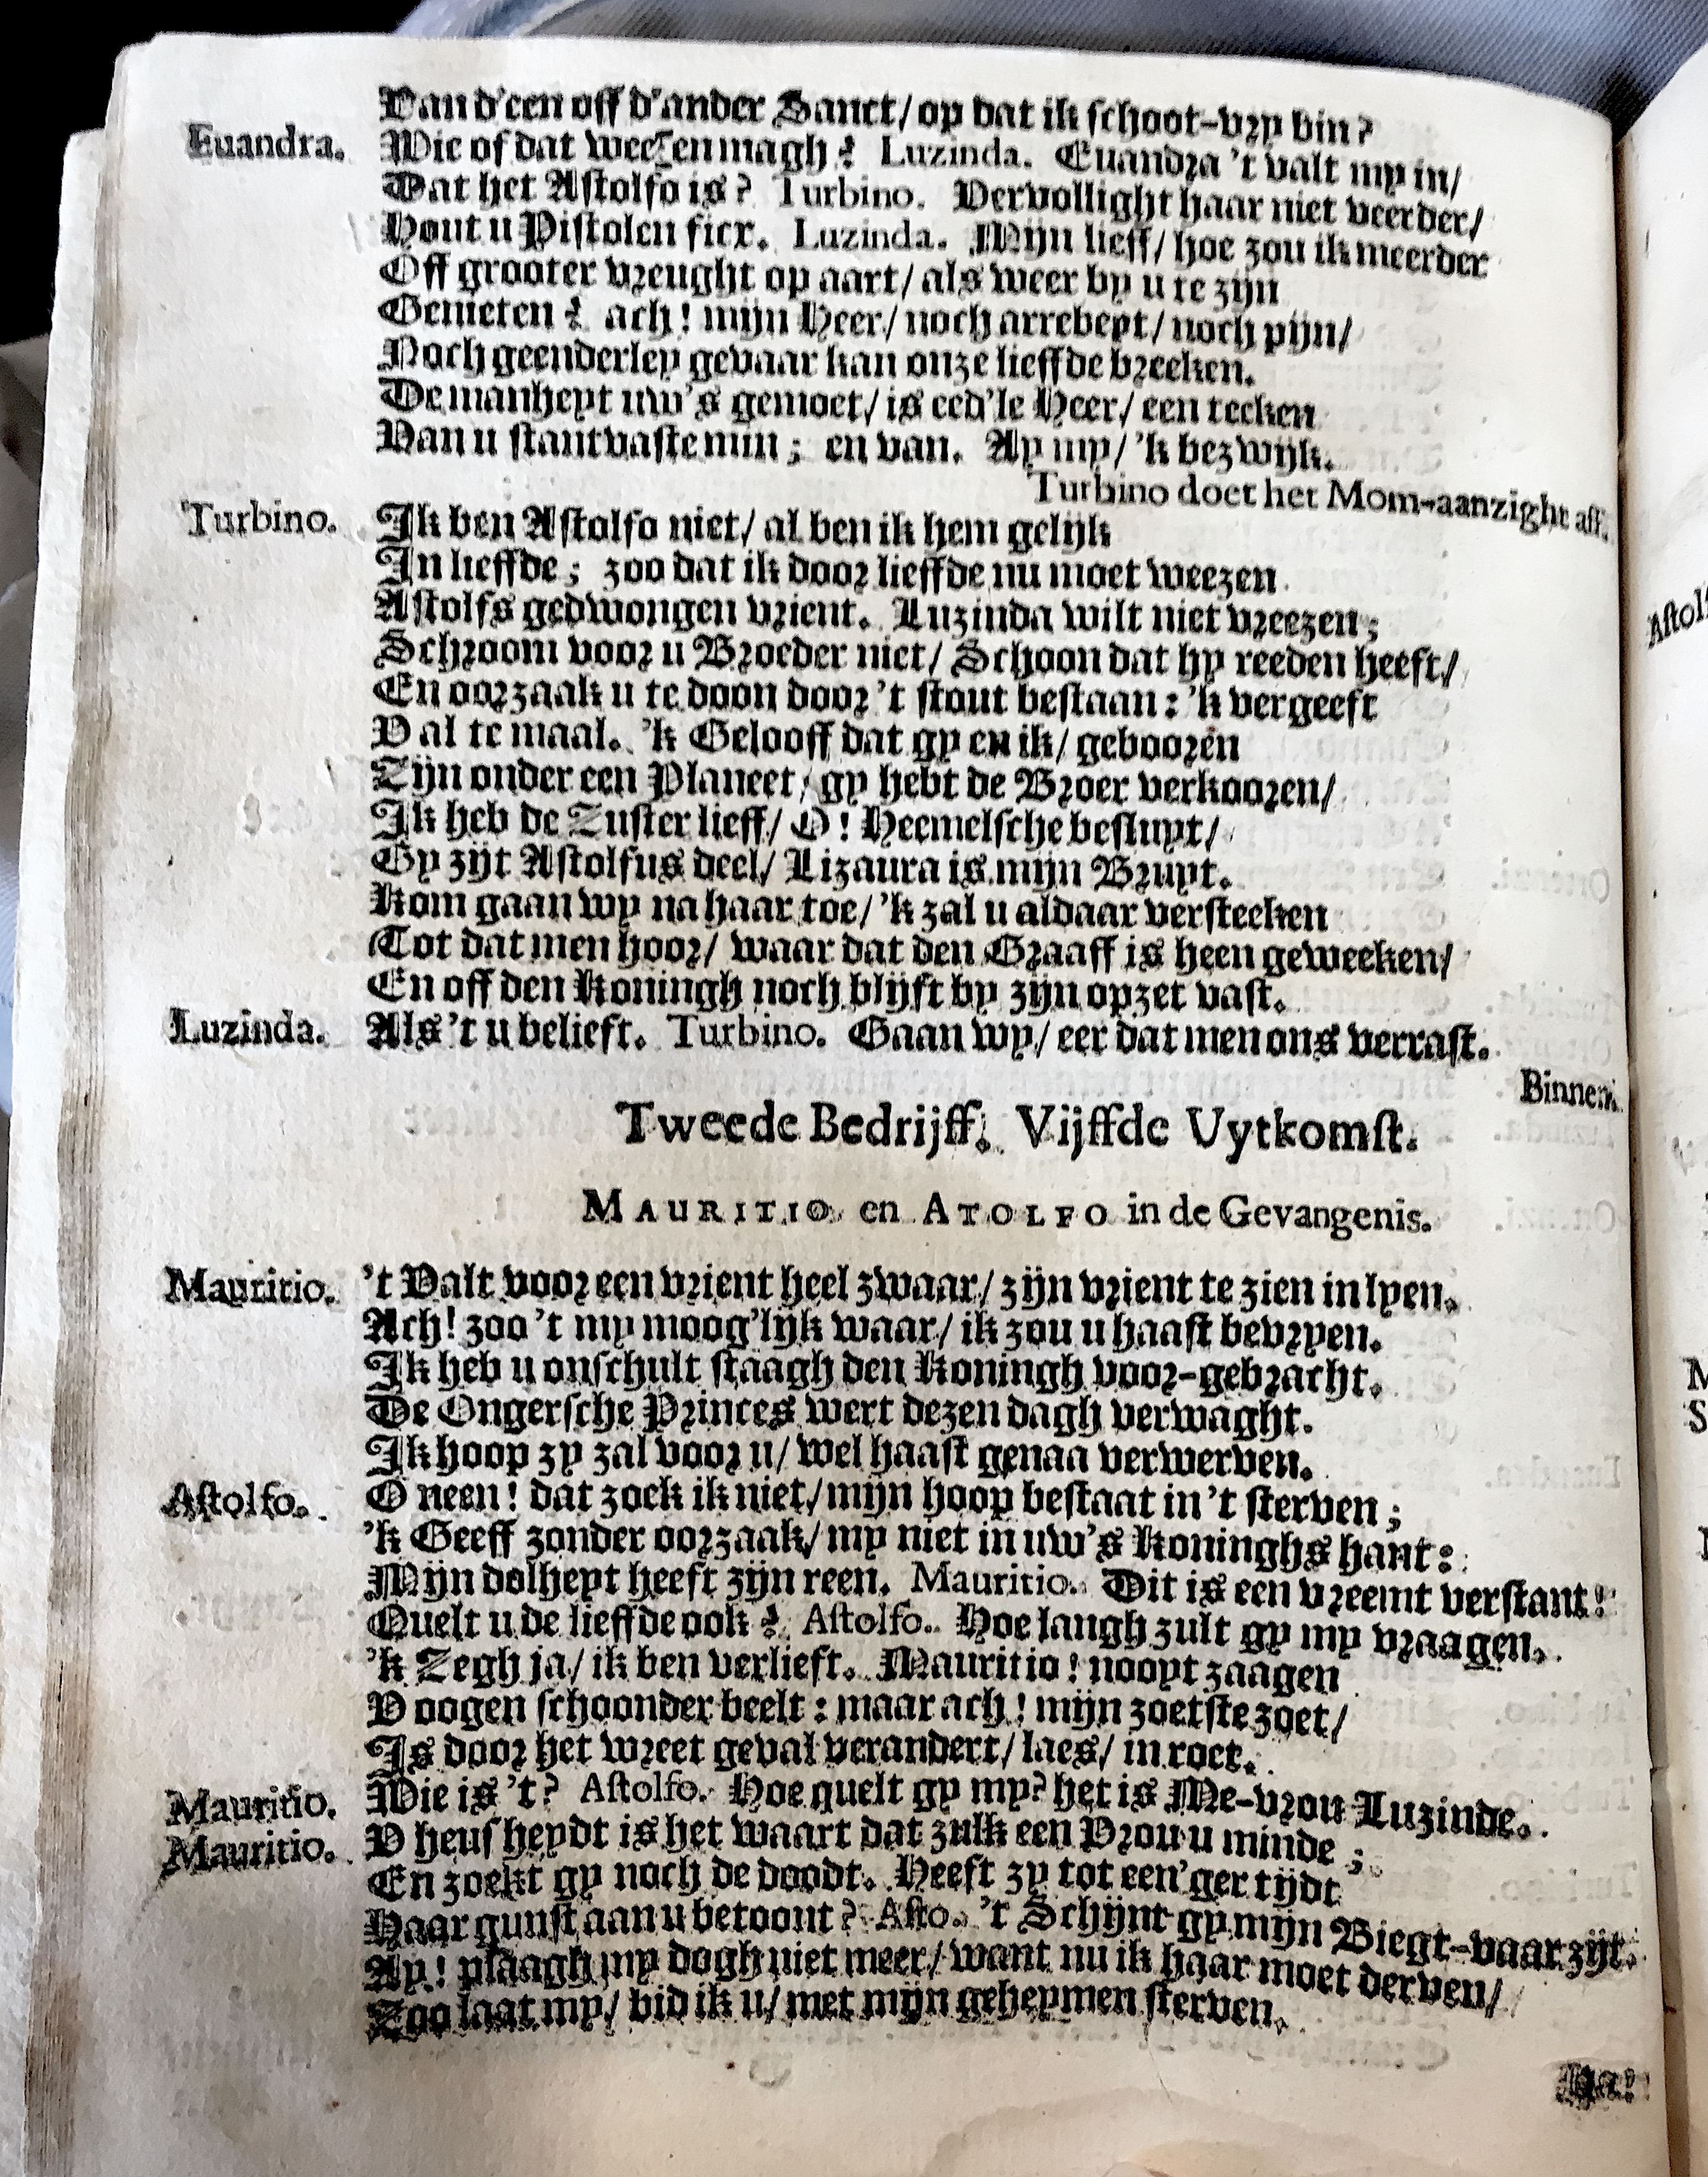 Van d'een off d'ander Sanct/ op dat ik schoot-vry bin?
Euandra. Wie of dat weezen magh? Luzinda. Euandra 't valt my in/
Dat het Astolfo is? Turbino. Vervollight haar niet veerder/
Hout u Pistolen fier. Luzinda. Mijn lieff/ hoe zou ik meerder
Off grooter vreught op aart/ als weer by u te zijn
Genieten? ach! mijn Heer/ noch arrebeyt/ noch pijn/
Noch geenderley gevaar kan onze lieffde breeken.
De manheyt uw's gemoet/ is eed'le Heer/ een teeken
Van u stantvaste min; en van. Ay my/ 'k bezwijk.
Turbino doet het Mom-aanzight aff.
Turbino. Ik ben Astolfo niet/ al ben ik hem gelijk
In lieffde; zoo dat ik door lieffde nu moet weezen
Astolfs gedwongen vrient. Luzinda wilt niet vreezen;
Schroom voor u Broeder niet/ Schoon dat hy reeden heeft/
En oorzaak u te doon door 't stout bestaan: 'k vergeeft
V al te maal. 'k Gelooff dat gy en ik/ gebooren
Zijn onder een Planeet/ gy hebt de Broer verkooren/
Ik heb de Zuster lieff/ O! Heemelsche besluyt/
Gy zijt Astolfus deel/ Lizaura is mijn Bruyt.
Kom gaan wy na haar toe/ 'k zal u aldaar versteeken
Tot dat men hoor/ waar dat den Graaff is heen geweeken/
En off den Koningh noch blijft by zijn opzet vast.
Luzinda. Als 't u belieft. Turbino. Gaan wy/ eer dat men ons verrast.
Binnen.
Tweede Bedrijff. Vijffde Uytkomst.
MAURITIO en ATOLFO in de Gevangenis.
Mauritio. 't Valt voor een vrient heel zwaar/ zijn vrient te zien in lyen.
Ach! zoo 't my moog'lijk waar/ ik zou u haast bevryen.
Ik heb u onschult staagh den Koningh voor-gebracht.
De Ongersche Princes wert dezen dagh verwaght.
Ik hoop zy zal voor u/ wel haast genaa verwerven.
Astolfo. O neen! dat zoek ik niet/ mijn hoop bestaat in 't sterven;
'k Geeff zonder oorzaak/ my niet in uw's Koninghs hant:
Mijn dolheyt heeft zijn reen. Mauritio. Dit is een vreemt verstant!
Quelt u de lieffde ook? Astolfo. Hoe langh zult gy my vraagen.
'k Zegh ja/ ik ben verlieft. Mauritio! nooyt zaagen
V oogen schoonder beelt: maar ach! mijn zoetste zoet/
Is door het wreet geval verandert/ laes/ in roet.
Mauritio. Wie is 't? Astolfo. Hoe quelt gy my? het is Me-vrou Luzinde.
Mauritio. V heusheydt is het waart dat zulk een Vrou u minde;
En zoekt gy noch de doodt. Heeft zy tot een'ger tijdt
Haar gunst aan u betoont? Asto. 't Schijnt gy mijn Biegt-vaar zijt.
Ay! plaagh my dogh niet meer/ want nu ik haar moet derven/
Zoo laat my/ bid ik u/ met mijn geheymen sterven.
Ha!
Astol
M
S